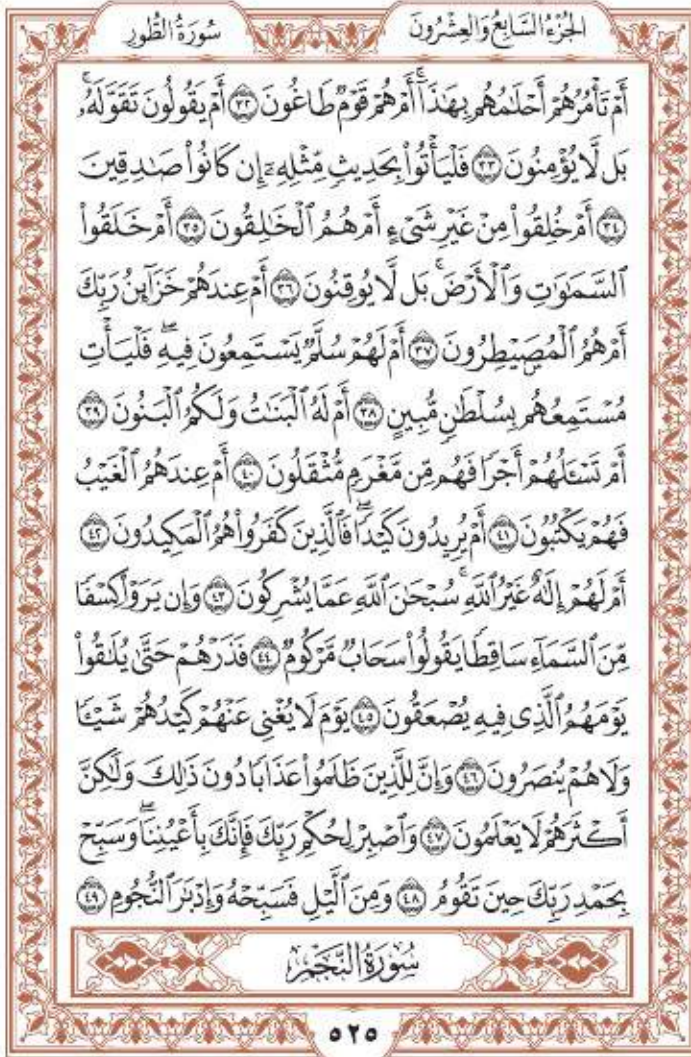 الجُزْءُ السَّابِعُ وَالعِشْرُونَ
سُورَةُ الطُّورِ
أَمۡ تَأۡمُرُهُمۡ أَحۡلَٰمُهُم بِهَٰذَآۚ أَمۡ هُمۡ قَوۡمٞ طَاغُونَ ٣٢ أَمۡ يَقُولُونَ تَقَوَّلَهُۥۚ
بَل لَّا يُؤۡمِنُونَ ٣٣ فَلۡيَأۡتُواْ بِحَدِيثٖ مِّثۡلِهِۦٓ إِن كَانُواْ صَٰدِقِينَ
٣٤ أَمۡ خُلِقُواْ مِنۡ غَيۡرِ شَيۡءٍ أَمۡ هُمُ ٱلۡخَٰلِقُونَ ٣٥ أَمۡ خَلَقُواْ
ٱلسَّمَٰوَٰتِ وَٱلۡأَرۡضَۚ بَل لَّا يُوقِنُونَ ٣٦ أَمۡ عِندَهُمۡ خَزَآئِنُ رَبِّكَ
أَمۡ هُمُ ٱلۡمُصَۜيۡطِرُونَ ٣٧ أَمۡ لَهُمۡ سُلَّمٞ يَسۡتَمِعُونَ فِيهِۖ فَلۡيَأۡتِ
مُسۡتَمِعُهُم بِسُلۡطَٰنٖ مُّبِينٍ ٣٨ أَمۡ لَهُ ٱلۡبَنَٰتُ وَلَكُمُ ٱلۡبَنُونَ ٣٩
أَمۡ تَسۡـَٔلُهُمۡ أَجۡرٗا فَهُم مِّن مَّغۡرَمٖ مُّثۡقَلُونَ ٤٠ أَمۡ عِندَهُمُ ٱلۡغَيۡبُ
فَهُمۡ يَكۡتُبُونَ ٤١ أَمۡ يُرِيدُونَ كَيۡدٗاۖ فَٱلَّذِينَ كَفَرُواْ هُمُ ٱلۡمَكِيدُونَ ٤٢
أَمۡ لَهُمۡ إِلَٰهٌ غَيۡرُ ٱللَّهِۚ سُبۡحَٰنَ ٱللَّهِ عَمَّا يُشۡرِكُونَ ٤٣ وَإِن يَرَوۡاْ كِسۡفٗا
مِّنَ ٱلسَّمَآءِ سَاقِطٗا يَقُولُواْ سَحَابٞ مَّرۡكُومٞ ٤٤ فَذَرۡهُمۡ حَتَّىٰ يُلَٰقُواْ
يَوۡمَهُمُ ٱلَّذِي فِيهِ يُصۡعَقُونَ ٤٥ يَوۡمَ لَا يُغۡنِي عَنۡهُمۡ كَيۡدُهُمۡ شَيۡـٔٗا
وَلَا هُمۡ يُنصَرُونَ ٤٦ وَإِنَّ لِلَّذِينَ ظَلَمُواْ عَذَابٗا دُونَ ذَٰلِكَ وَلَٰكِنَّ
أَكۡثَرَهُمۡ لَا يَعۡلَمُونَ ٤٧ وَٱصۡبِرۡ لِحُكۡمِ رَبِّكَ فَإِنَّكَ بِأَعۡيُنِنَاۖ وَسَبِّحۡ
بِحَمۡدِ رَبِّكَ حِينَ تَقُومُ ٤٨ وَمِنَ ٱلَّيۡلِ فَسَبِّحۡهُ وَإِدۡبَٰرَ ٱلنُّجُومِ ٤٩
سُورَةُ النَّجۡمِ
٥٢٥